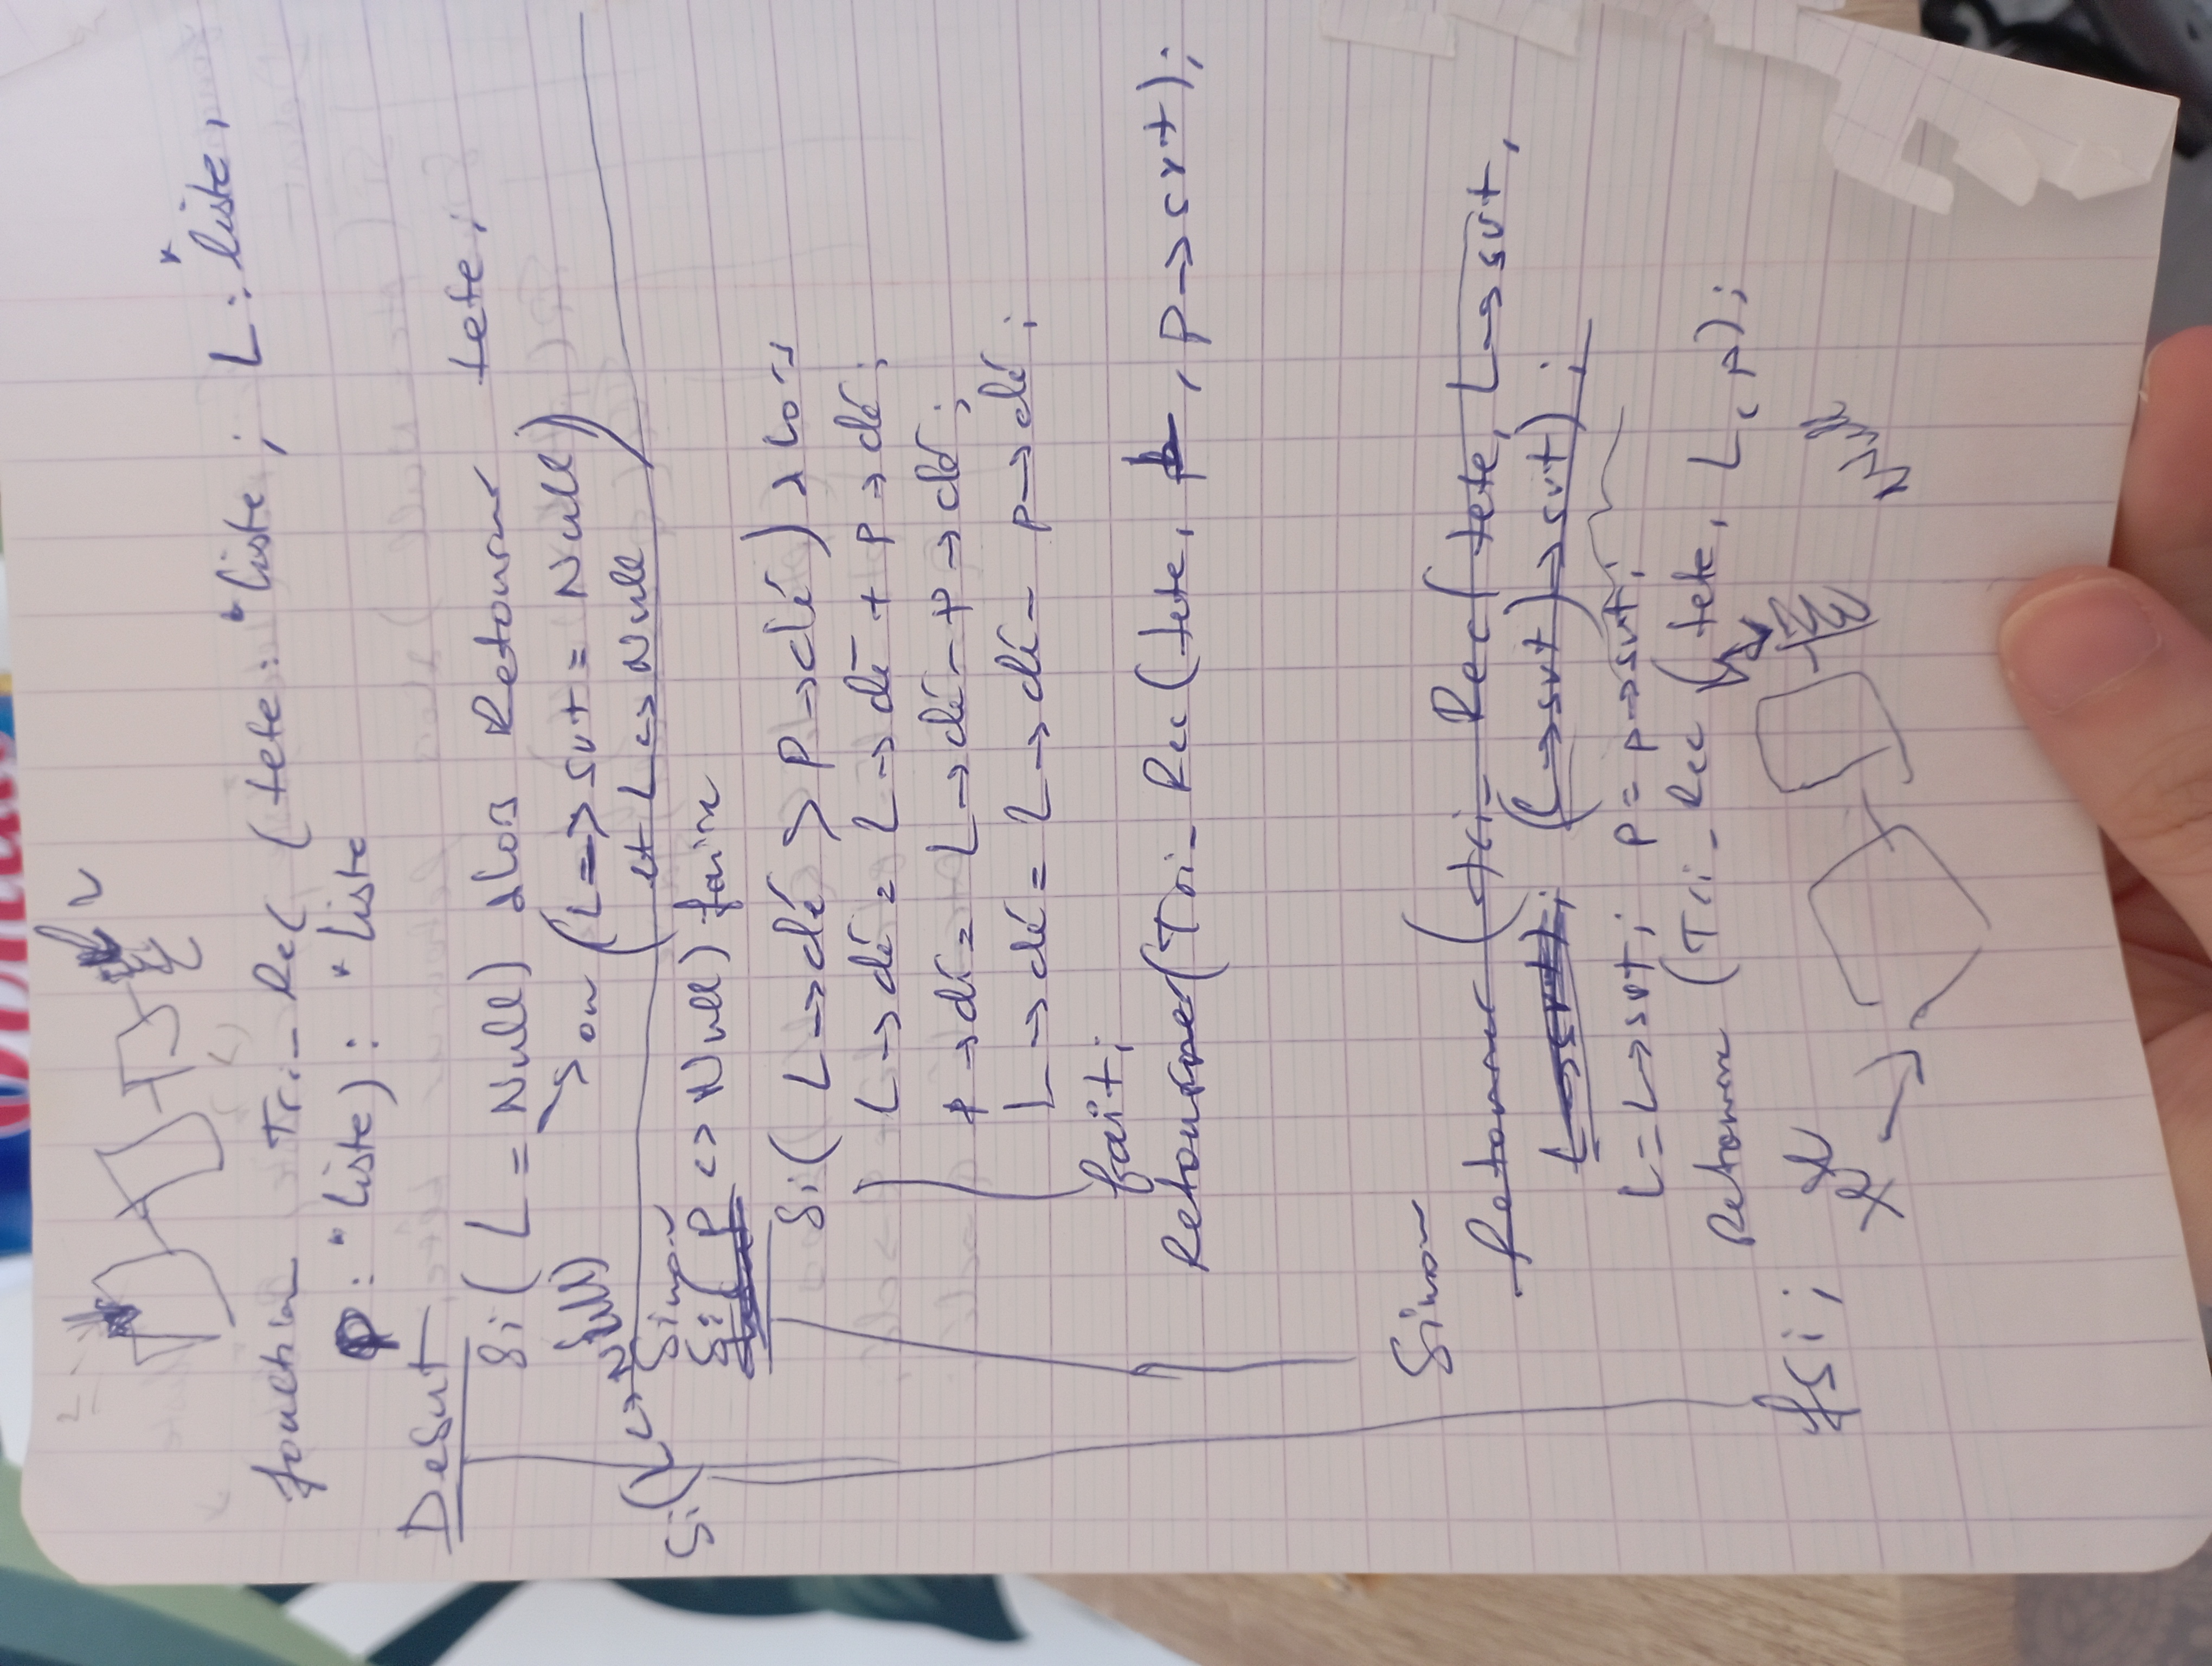 L
fonction Tri_Rec (tete : *liste ; L : *liste,
P : *liste) : *liste
Debut
Si ( L = Null) alors Retourner tete ;
ou (L -> svt = Null)
et L <> Null
Si (L <> Null)
Sinon
Si ( P <> Null) faire
Si ( L -> clé > P -> clé ) alors
L -> clé = L -> clé + P -> clé ;
P -> clé = L -> clé - P -> clé ;
L -> clé = L -> clé - p -> clé ;
fait ;
Retourner (Tri_Rec (tete, L, p -> svt) ;
Sinon
Retourner (tri_Rec ( tete, L -> svt,
L -> svt) ; (L -> svt) -> svt) ;
L = L -> svt ; p = p -> svt ;
Retourner (Tri_Rec ( tete, L, p) ;
fsi ;
tete
Null